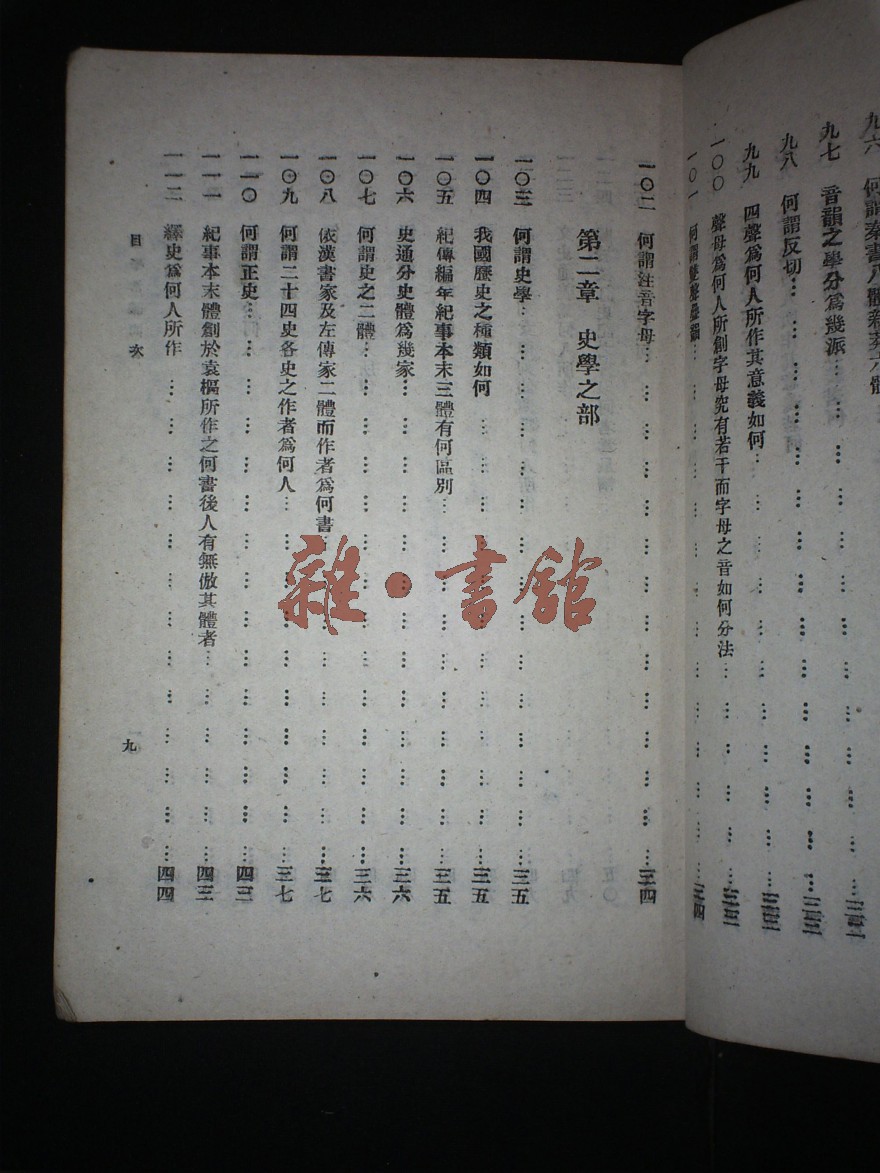 九六 何謂秦書八體新莽六體
九七 音韻之學分爲幾派
九八 何謂反切
九九 四聲爲何人所作其意義如何
一〇〇 聲母爲何人所創字母究有若干而字母之音如何分法
一〇一 何謂雙聲疊韻 三四
一〇二 何謂注音字母 三四
第二章 史學之部
一〇三 何謂史學 三五
一〇四 我國歷史之種類如何 三五
一〇五 紀傳編年紀事本末三體有何區別 三五
一〇六 史通分史體爲幾家 三六
一〇七 何謂史之二體 三六
一〇八 依漢書家及左傳家二體而作者爲何書 三七
一〇九 何謂二十四史各史之作者爲何人 三七
一一〇 何謂正史 四三
一一一 紀事本末體創於袁樞所作之何書後人有無倣其體者 四三
一一二 繹史爲何人所作 四四
目次
九
雜·書館